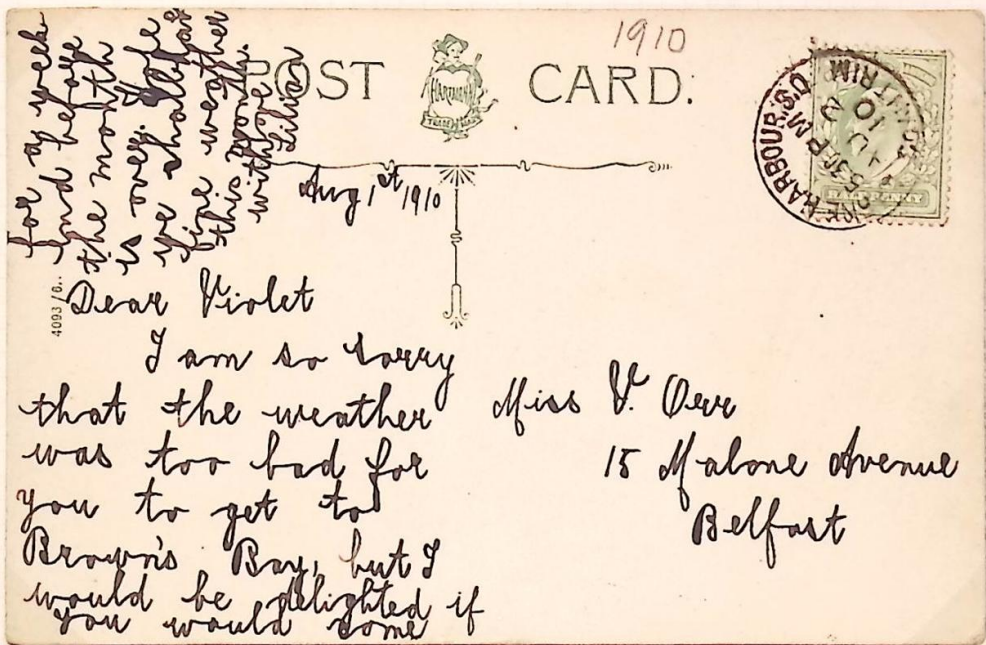 1910
POST CARD.
HARTMANN
TRADE MARK
HARBOUR S.O.
5 30 PM
AU 2
10
ANTRIM
HALFPENNY
4093/6.
Aug 1st 1910
Dear Violet
I am so sorry
that the weather
was too bad for
you to get to
Brown's Bay, but I
would be delighted if
you would come
for a week
and before
the month
is over. I hope
we shall have
fine weather
this month.
with love
Lilian
Miss V. Orr
15 Malone Avenue
Belfast